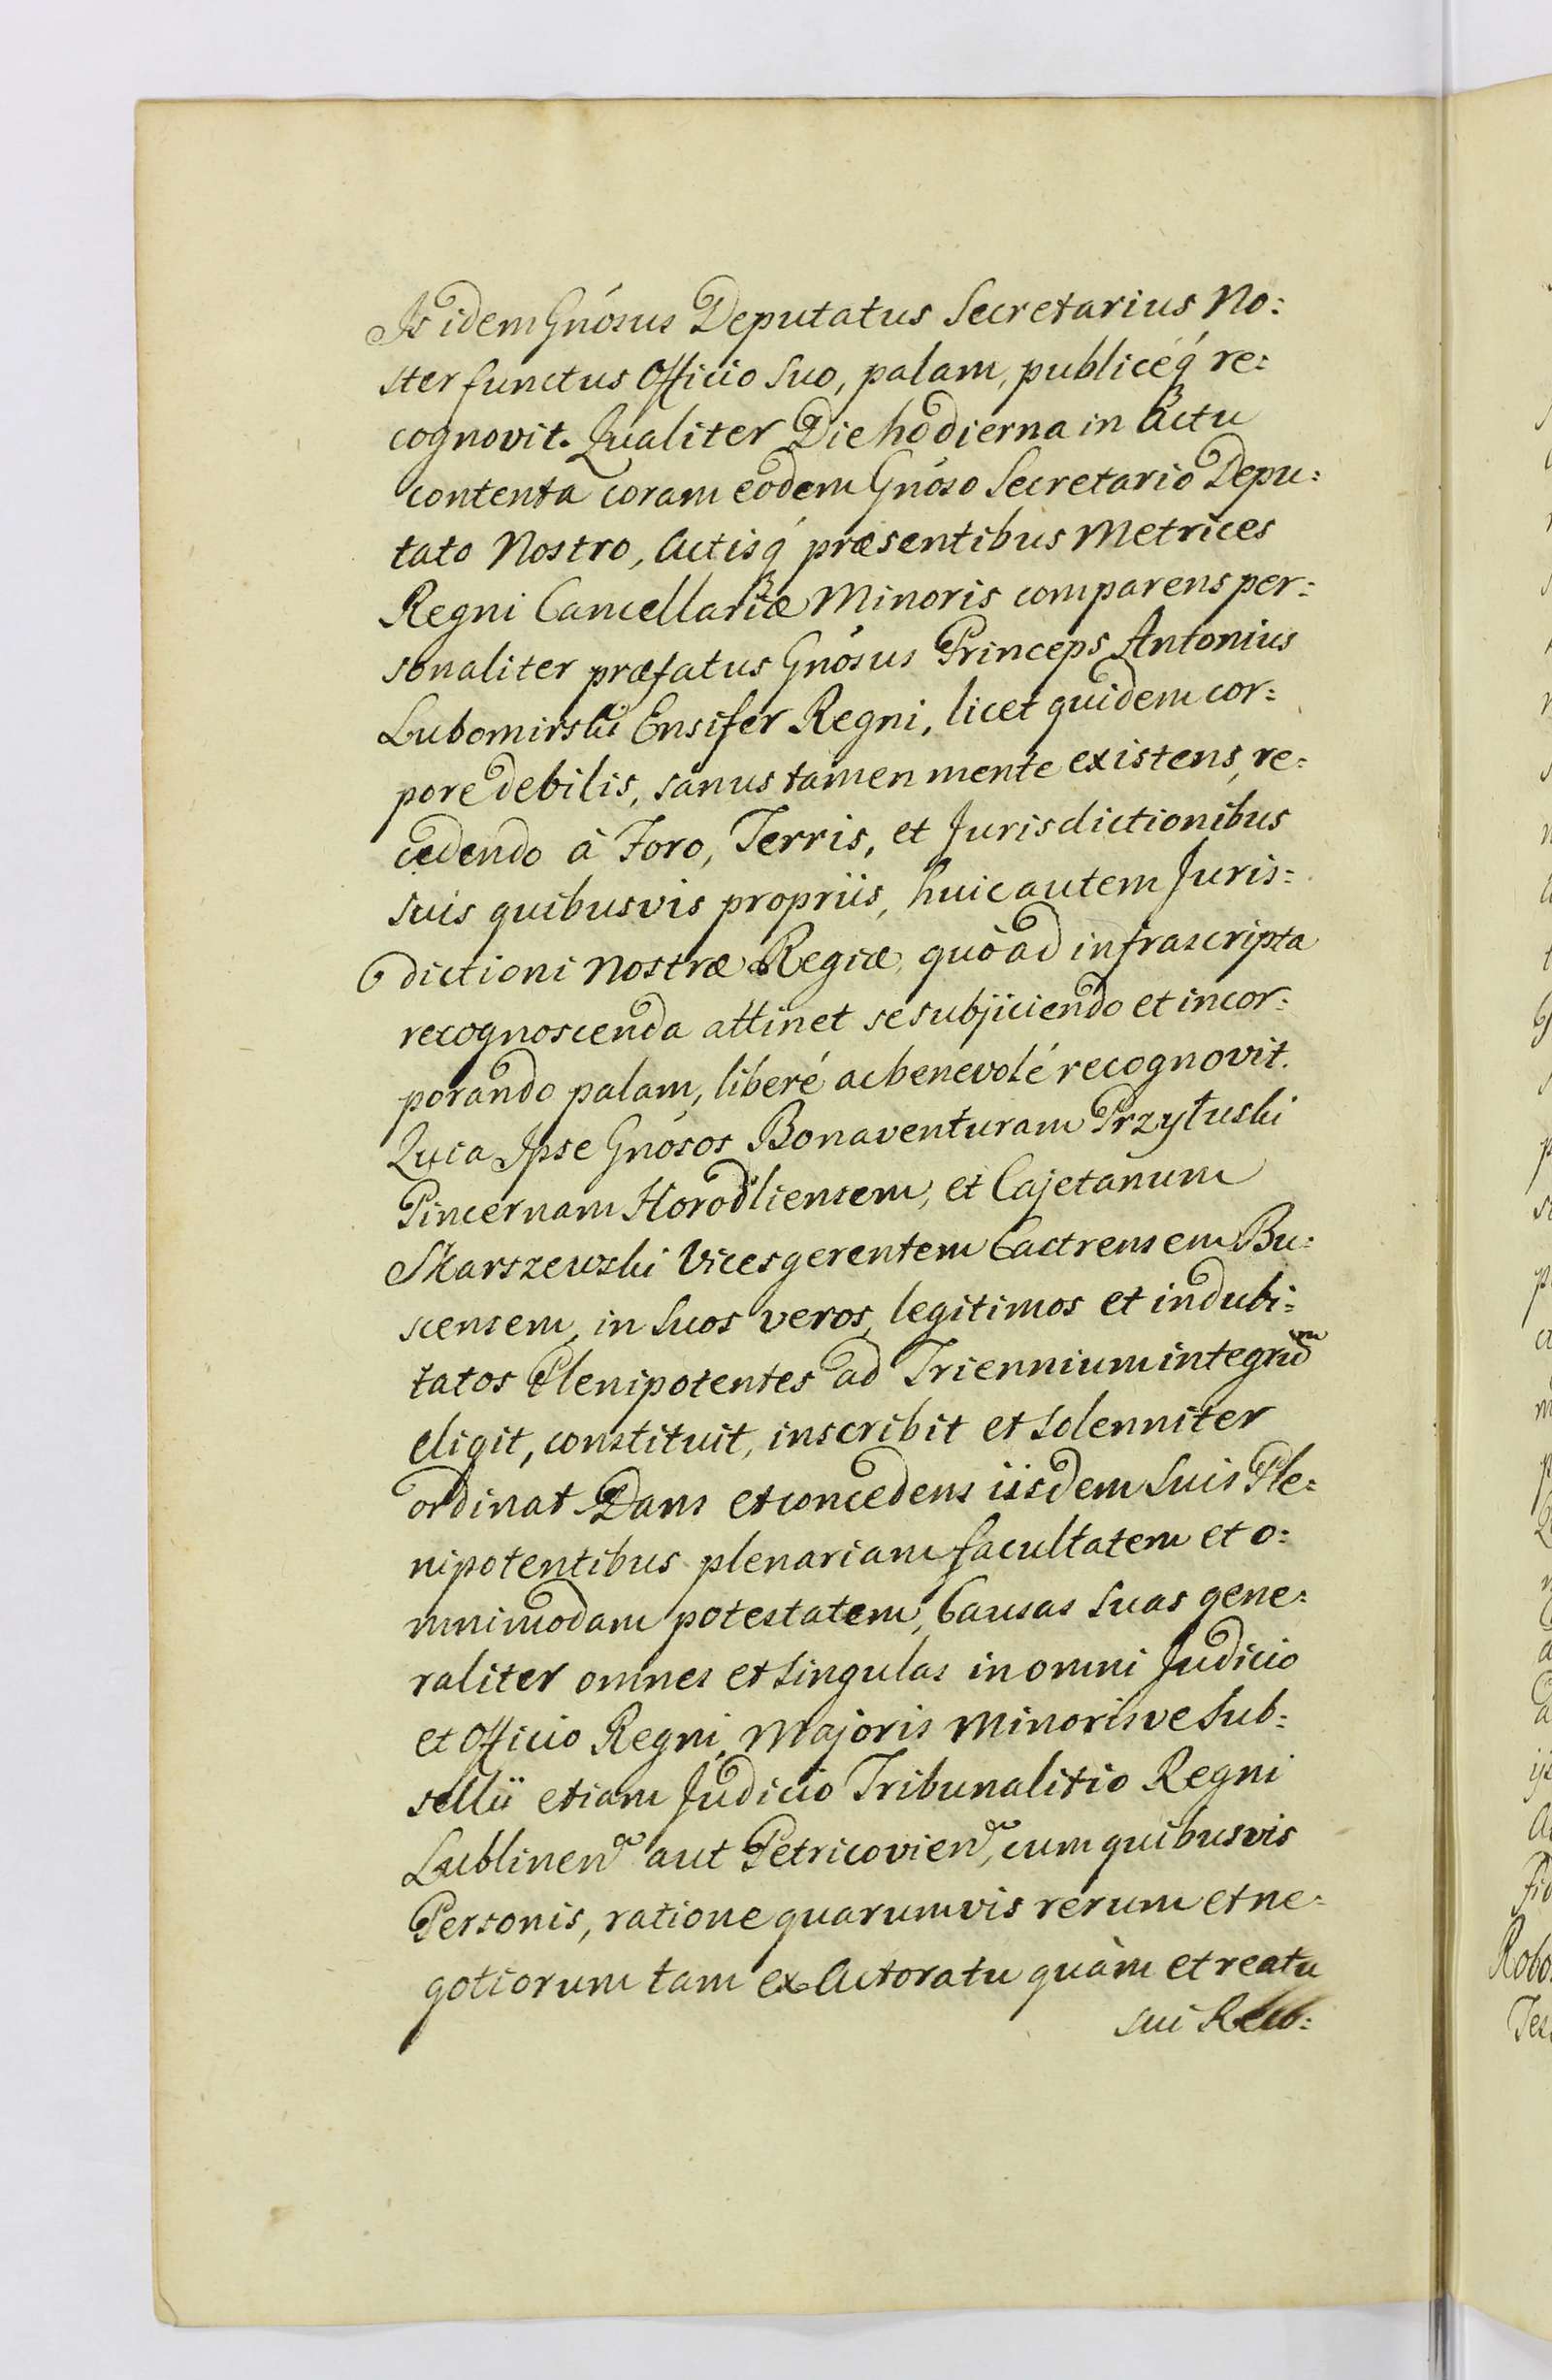 Is idem Gnósus Deputatus Secretarius No:
ster functus Officio Suo, palam, publicéq́ re:
cognovit. Qualiter Die hodierna in Actu
contenta coram eodem Gnóso Secretario Depu:
tato Nostro, Actisq́ præsentibus Metrices
Regni Cancellariæ Minoris comparens per:
sonaliter præfatus Gnósus Princeps Antonius
Lubomirski Ensifer Regni, licet quidem cor:
pore debilis, sanus tamen mente existens, re:
cedendo à Foro, Terris, et Jurisdictionibus
suis quibusvis propriis, huic autem Juris:
dictioni Nostræ Regiæ, quò ad infrascripta
recognoscenda attinet se subjiciendo et incor:
porando palam, liberé ac benevolé recognovit.
Quia Ipse Gnósos Bonaventuram Przyłuski
Pincernam Horodliensem, et Cajetanum
Skarszewski Vicesgerentem Castrensem Bu:
scensem, in Suos veros, legitimos et indubi:
tatos Plenipotentes ad Triennium integrum
eligit, constituit, inscribit et Solenniter
ordinat. Dans et concedens iisdem Suis Ple:
nipotentibus plenariam facultatem et o:
mnimodam potestatem, Causas Suas gene:
raliter omnes et Singulas in omni Judicio
et Officio Regni, Majoris Minorisve Sub:
sellii etiam Judicio Tribunalitio Regni
Lublinen aut Petricovien, cum quibusvis
Personis, ratione quarumvis rerum et ne:
gotiorum tam ex Actoratu quàm et reatu
sui